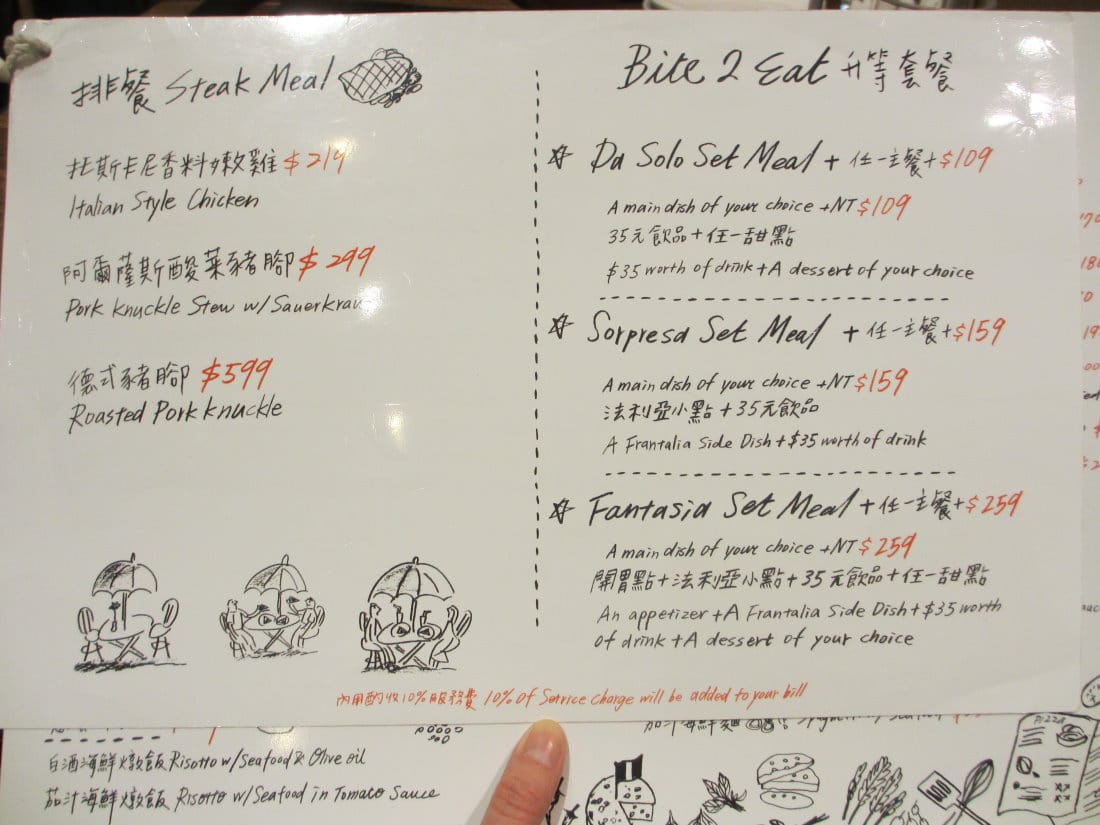 排餐 Steak Meal
托斯卡尼香料嫩雞 $219
Italian Style Chicken
阿爾薩斯酸菜豬腳 $299
Pork Knuckle Stew w/Sauerkrau
德式豬腳 $599
Roasted Pork Knuckle
Bite 2 Eat 升等套餐
Da Solo Set Meal + 任一主餐 + $109
A main dish of your choice +NT $109
35元飲品 + 任一甜點
$35 worth of drink + A dessert of your choice
Sorpresa Set Meal + 任一主餐 + $159
A main dish of your choice +NT $159
法利亞小點 + 35元飲品
A Frantalia Side Dish + $35 worth of drink
Fantasia Set Meal + 任一主餐 + $259
A main dish of your choice +NT $259
開胃點 + 法利亞小點 + 35元飲品 + 任一甜點
An appetizer + A Frantalia Side Dish + $35 worth
of drink + A dessert of your choice
內用酌收10%服務費 10% of Service charge will be added to your bill
白酒海鮮燉飯 Risotto w/Seafood & Olive oil
茄汁海鮮燉飯 Risotto w/Seafood in Tomato Sauce
茄汁海鮮麵
PIZZA